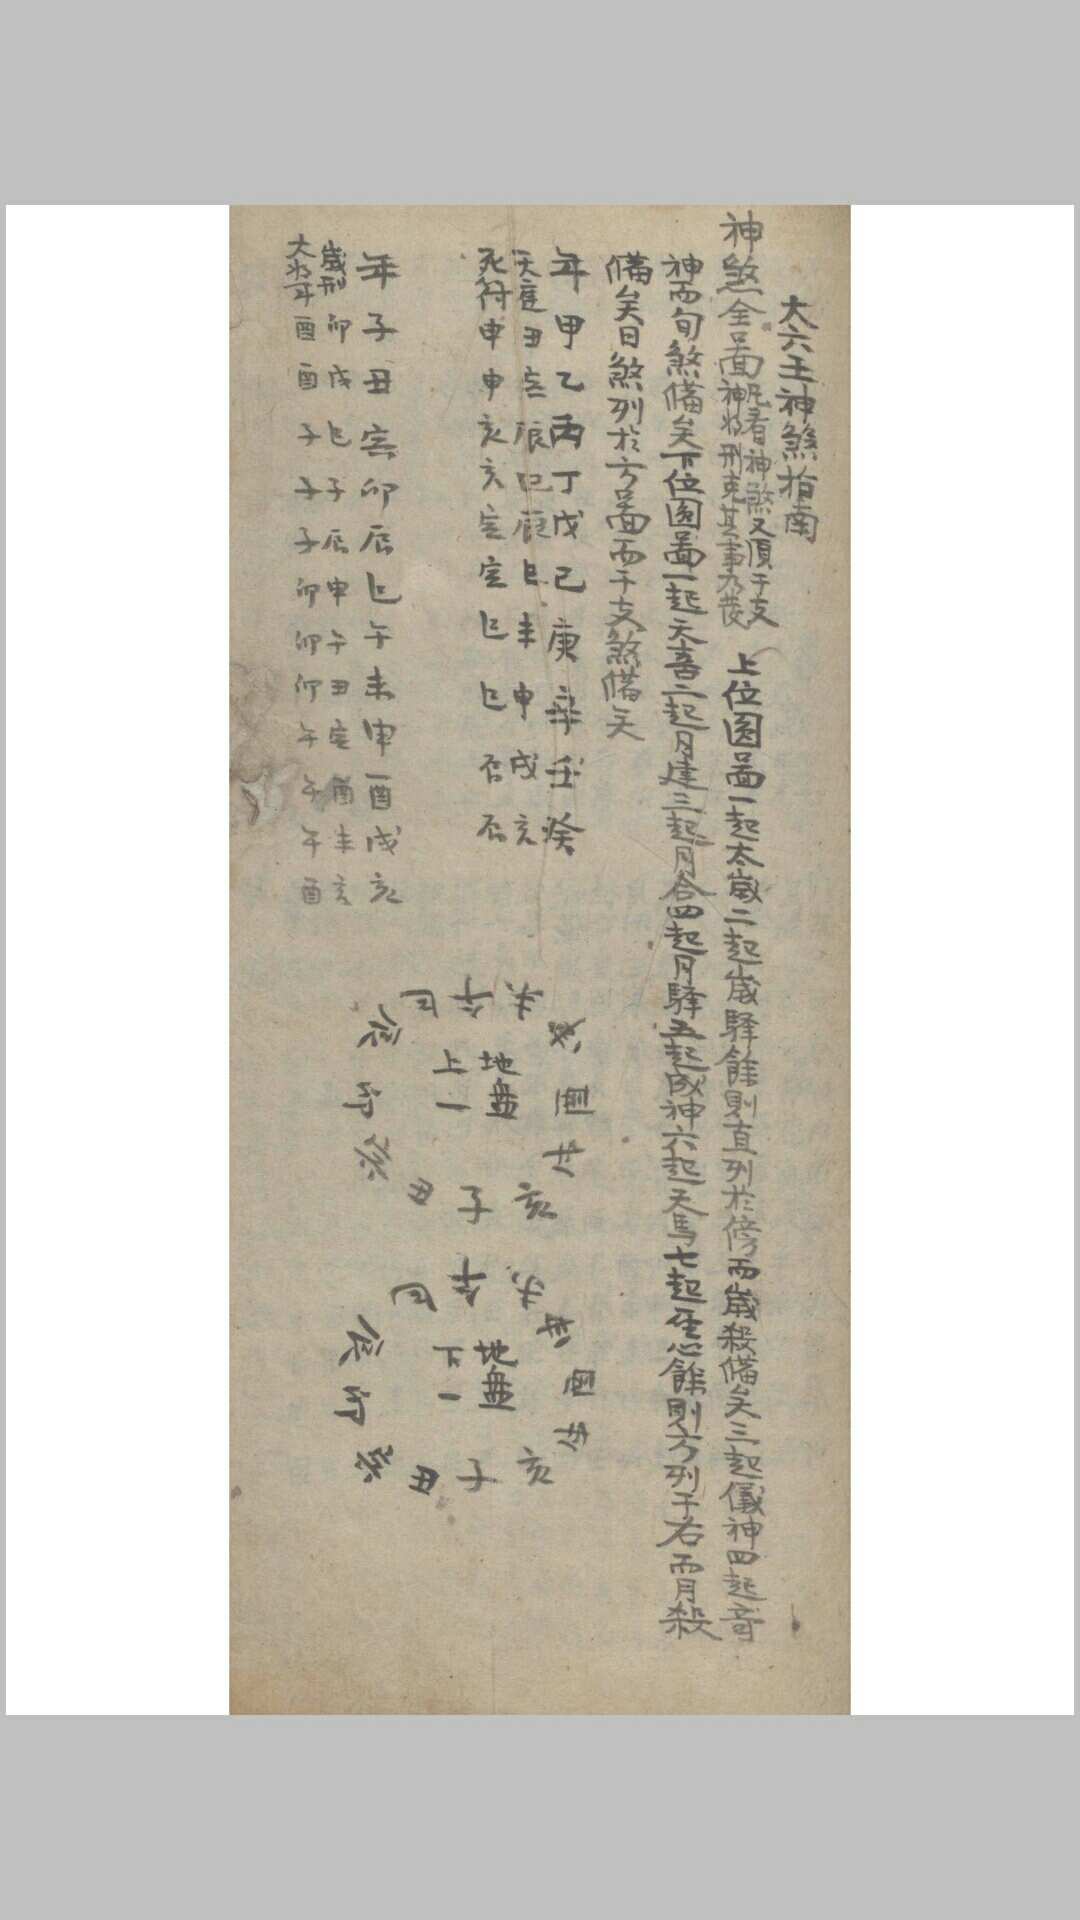 大六壬神煞指南
神煞全圖凡看神煞又須干支
神將刑克其事乃發
上位圓圖一起太歲二起歲驛餘則直列於傍而歲殺俻矣三起儀神四起奇
神而旬煞俻矣下位圓圖一起天喜二起月建三起月合四起月驛五起成神六起天馬七起生心餘則方列于右而月殺
俻矣日煞列於方圖而干支煞俻矣
年甲乙丙丁戊己庚辛壬癸
天寡丑亥辰巳辰巳未申戌亥
死符申申亥亥寅寅巳巳否否
年子丑寅卯辰巳午未申酉戌亥
歲刑卯戌巳子辰申午丑寅酉未亥
大將軍酉酉子子子卯卯卯午午午酉
巳午未
辰 申
地盤
上一
卯 酉
寅 戌
丑子亥
巳午未
辰 申
地盤
下一
卯 酉
寅 戌
丑子亥